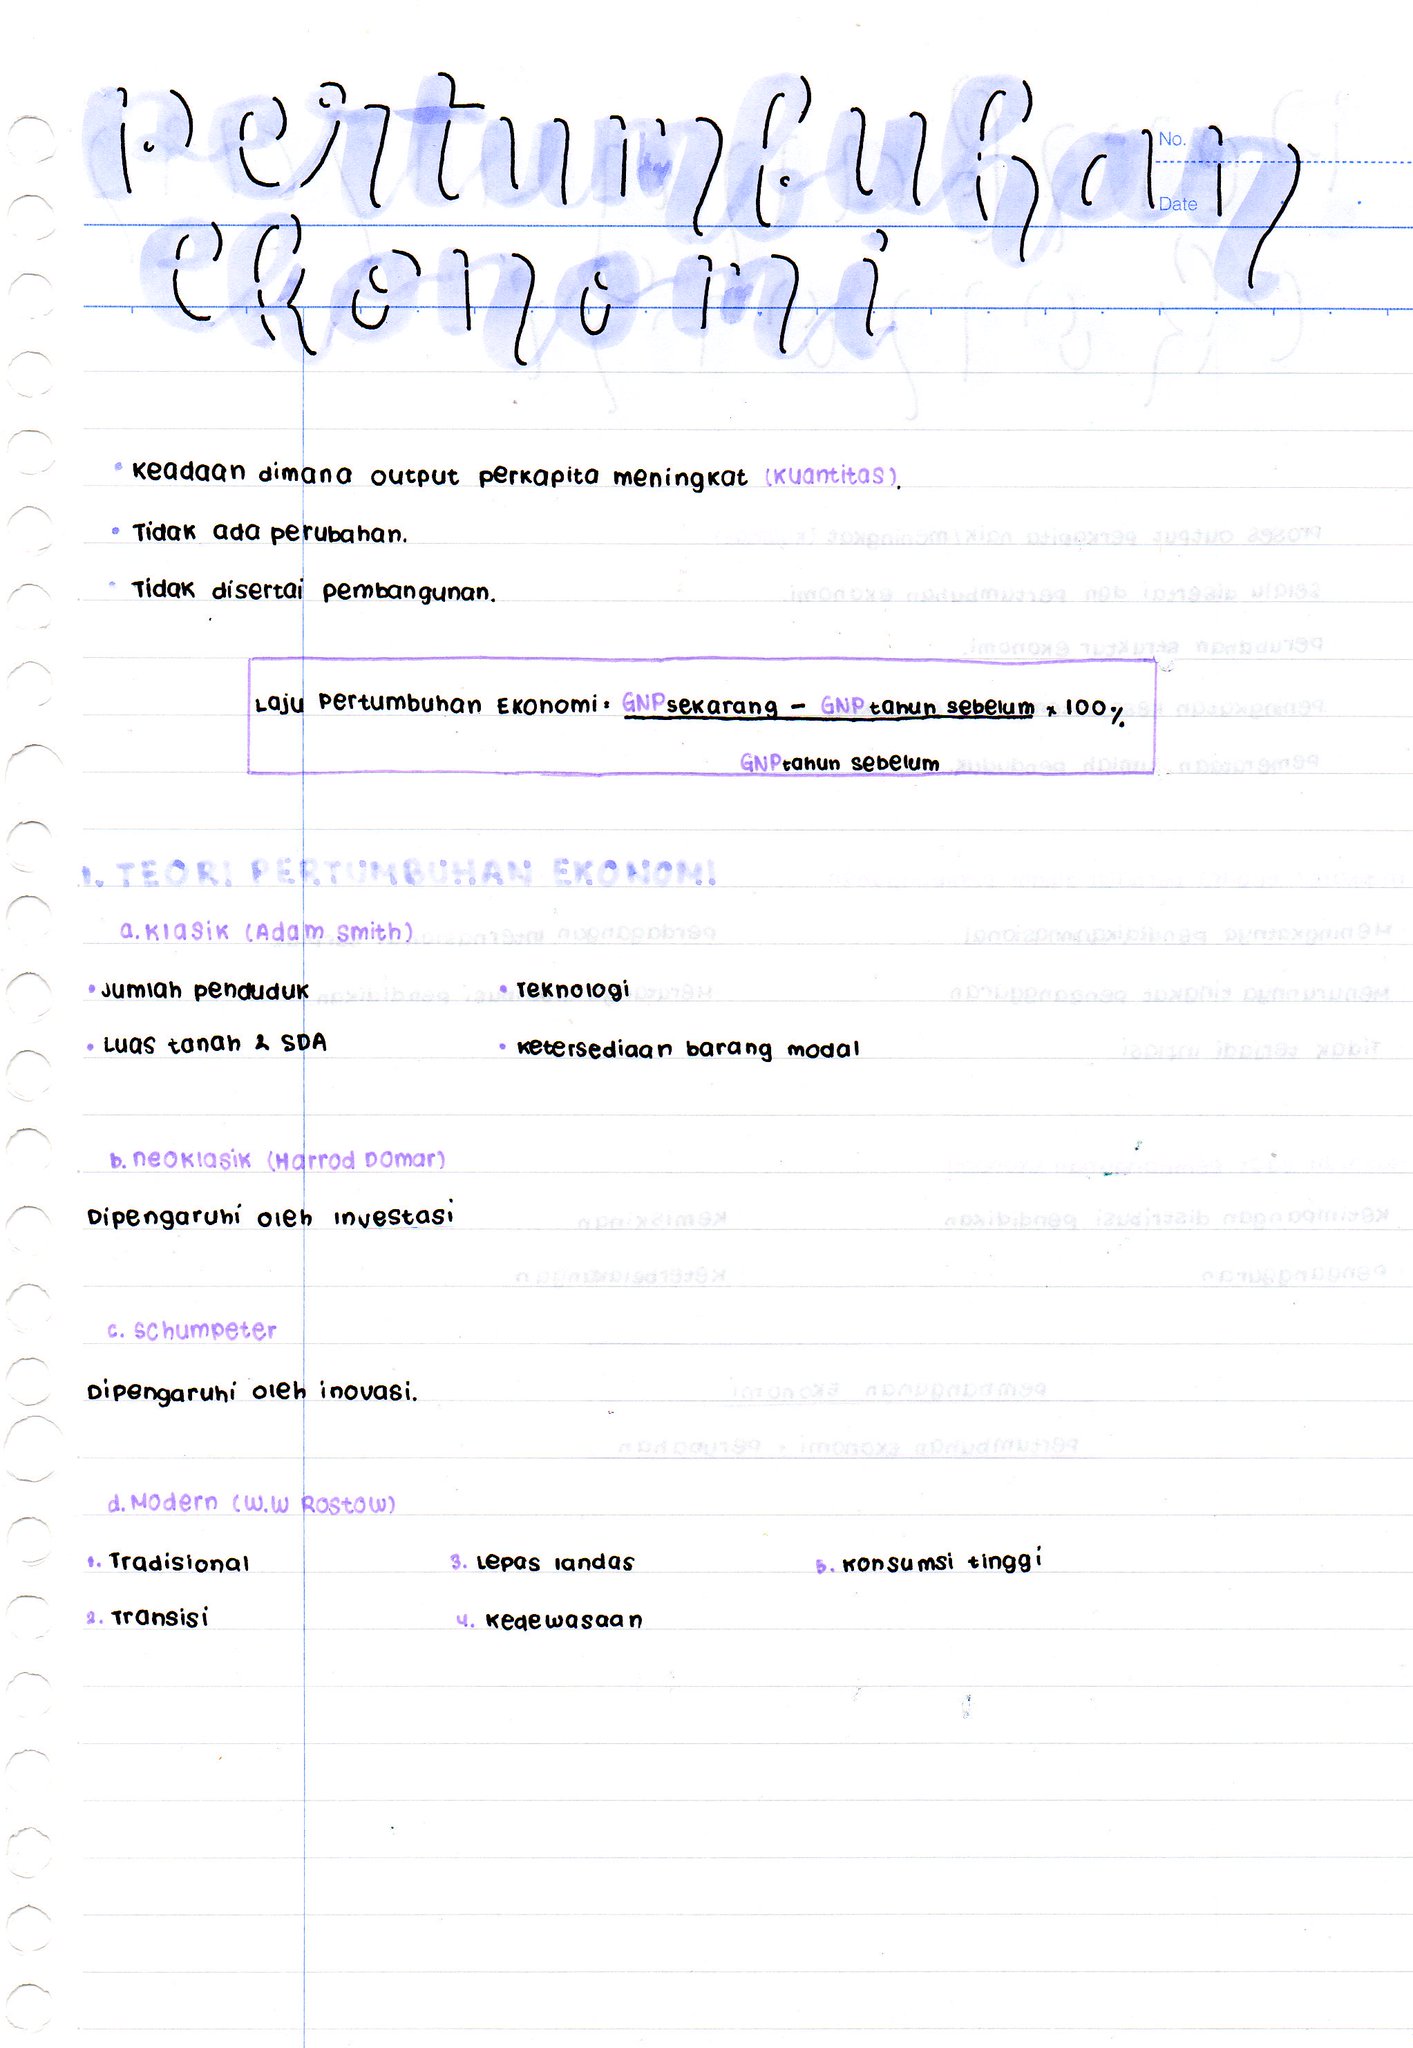 Pertumbuhan
No.
Date
Ekonomi
• Keadaan dimana output perkapita meningkat (Kuantitas).
• Tidak ada perubahan.
• Tidak disertai pembangunan.
Laju Pertumbuhan Ekonomi: GNP sekarang - GNP tahun sebelum x 100%
GNP tahun sebelum
1. TEORI PERTUMBUHAN EKONOMI
a. Klasik (Adam Smith)
• Jumlah penduduk • Teknologi
• Luas tanah & SDA • Ketersediaan barang modal
b. Neoklasik (Harrod Domar)
Dipengaruhi oleh investasi
c. Schumpeter
Dipengaruhi oleh inovasi.
d. Modern (W.W Rostow)
1. Tradisional 3. Lepas landas 5. Konsumsi tinggi
2. Transisi 4. Kedewasaan